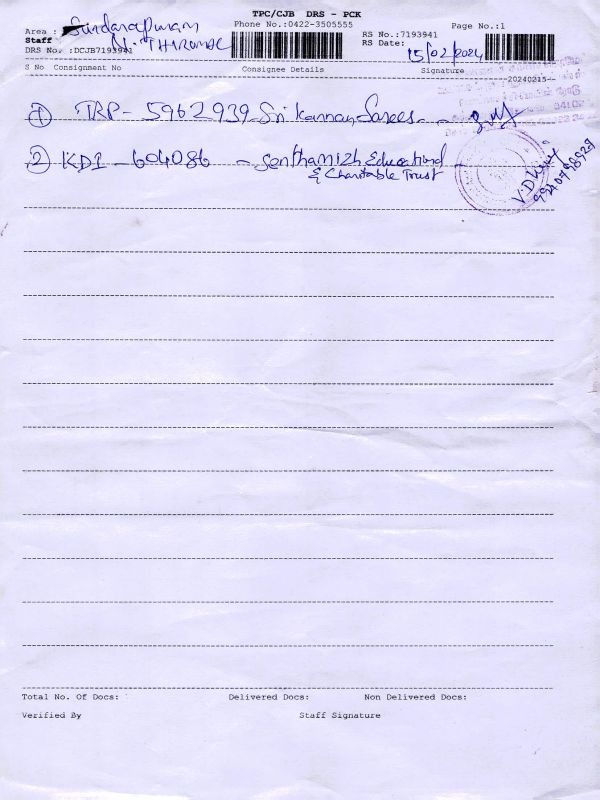 TPC/CJB DRS - PCK
Area : Sundarapuram
Phone No.:0422-3505555
Page No.:1
Staff N. THIRUMAL
RS No.:7193941
DRS No. :DCJB7193941
RS Date: 15/02/2024
S No Consignment No Consignee Details Signature
20240215
① TRP - 5962939 - Sri Kannan Sarees - -
② KDI - 604086 - Senthamizh Educational -
& Charitable Trust
Total No. Of Docs: Delivered Docs: Non Delivered Docs:
Verified By Staff Signature